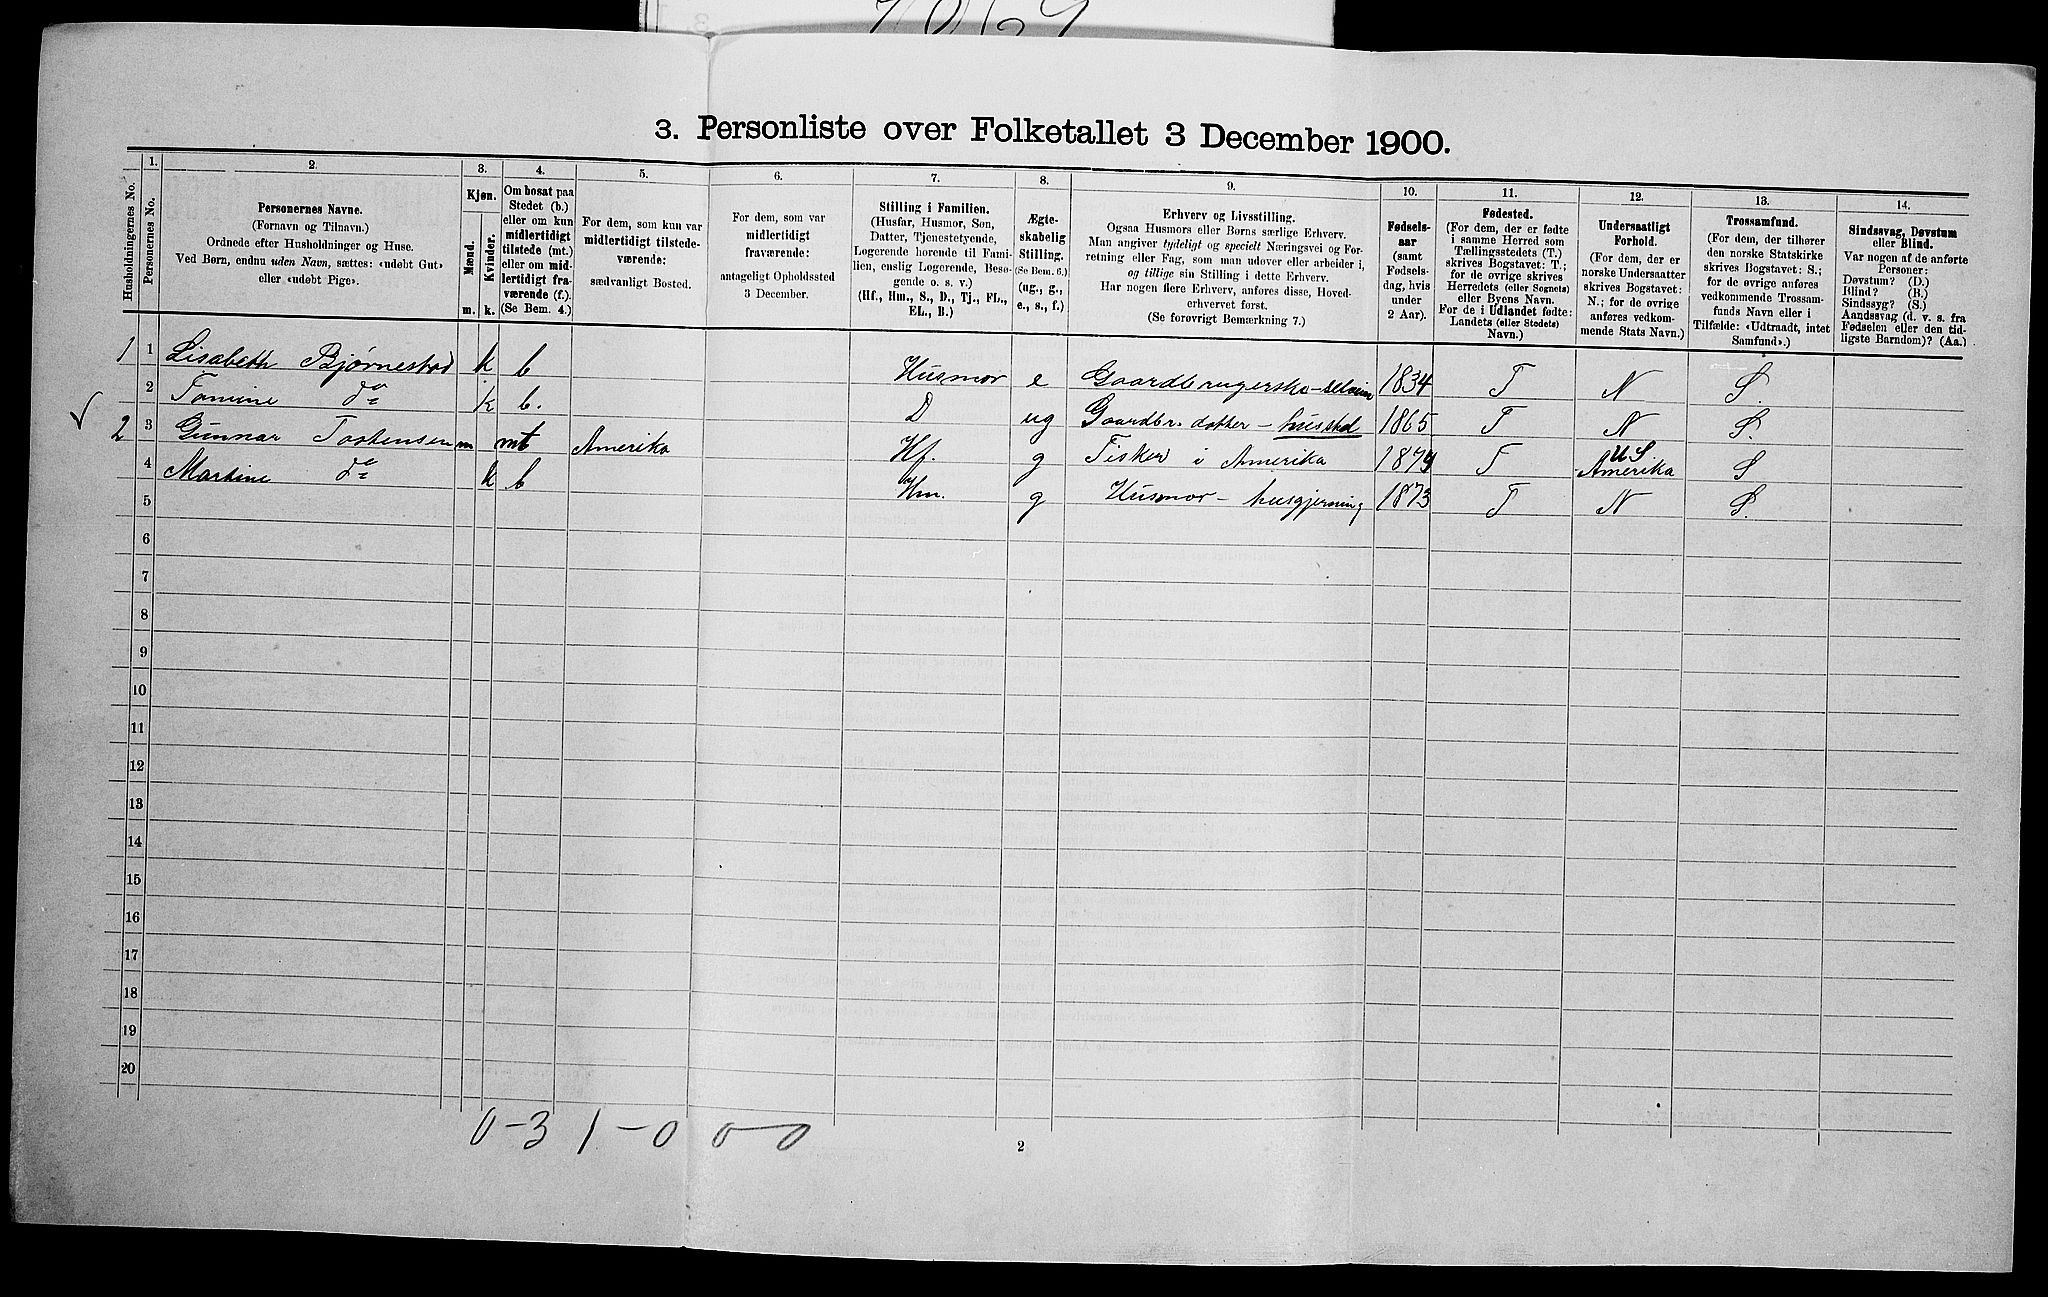 3. Personliste over Folketallet 3 December 1900.
Husholdningernes No.
1.
Personernes No.
2.
Personernes Navne.
(Fornavn og Tilnavn.)
Ordnede efter Husholdninger og Huse.
Ved Børn, endnu uden Navn, sættes: «udøbt Gut»
eller «udøbt Pige».
3.
Kjøn.
Mænd.
Kvinder.
m.
k.
4.
Om bosat paa
Stedet (b.)
eller om kun
midlertidigt
tilstede (mt.)
eller om mid-
lertidigt fra-
værende (f.).
(Se Bem. 4.)
5.
For dem, som kun var
midlertidigt tilstede-
værende:
sædvanligt Bosted.
6.
For dem, som var
midlertidigt
fraværende:
antageligt Opholdssted
3 December.
7.
Stilling i Familien.
(Husfar, Husmor, Søn,
Datter, Tjenestetyende,
Logerende hørende til Fami-
lien, enslig Logerende, Besø-
gende o. s. v.)
(Hf., Hm., S., D., Tj., FL.,
EL., B.)
8.
Ægte-
skabelig
Stilling.
(Se Bem. 6.)
(ug., g.,
e., s., f.)
9.
Erhverv og Livsstilling.
Ogsaa Husmors eller Børns særlige Erhverv.
Man angiver tydeligt og specielt Næringsvei og For-
retning eller Fag, som man udover eller arbeider i,
og tillige sin Stilling i dette Erhverv.
Har nogen flere Erhverv, anføres disse, Hoved-
erhvervet først.
(Se forøvrigt Bemærkning 7.)
10.
Fødsels-
aar
(samt
Fødsels-
dag, hvis
under
2 Aar).
11.
Fødested.
(For dem, der er fødte
i samme Herred som
Tællingsstedets (T.)
skrives Bogstavet: T.;
for de øvrige skrives
Herredets (eller Sognets)
eller Byens Navn.
For de i Udlandet fødte:
Landets (eller Stedets)
Navn.)
12.
Undersaatligt
Forhold.
(For dem, der er
norske Undersaatter
skrives Bogstavet:
N.; for de øvrige
anføres vedkom-
mende Stats Navn.)
13.
Trossamfund.
(For dem, der tilhører
den norske Statskirke
skrives Bogstavet: S.;
for de øvrige anføres
vedkommende Trossam-
funds Navn eller i
Tilfælde: «Udtraadt, intet
Samfund».)
14.
Sindssvag, Døvstum
eller Blind.
Var nogen af de anførte
Personer:
Døvstum? (D.)
Blind? (B.)
Sindssyg? (S.)
Aandssvag (d. v. s. fra
Fødselen eller den tid-
ligste Barndom)? (Aa.)
1 1 Lisabeth Bjørnestad k b Husmor e Gaardbrugerske - 1834 T N S.
2 Tomine do k b. D ug Gaardbr. datter - husstel 1865 T N S.
2 3 Gunnar Tostensen m mt Amerika Hf. g Fisker i Amerika T US Amerika S
4 Martine do k b Hm. g Husmor - husgjerning 1873 T N S.
5
6
7
8
9
10
11
12
13
14
15
16
17
18
19
20
0-3 1-0 0-0
2